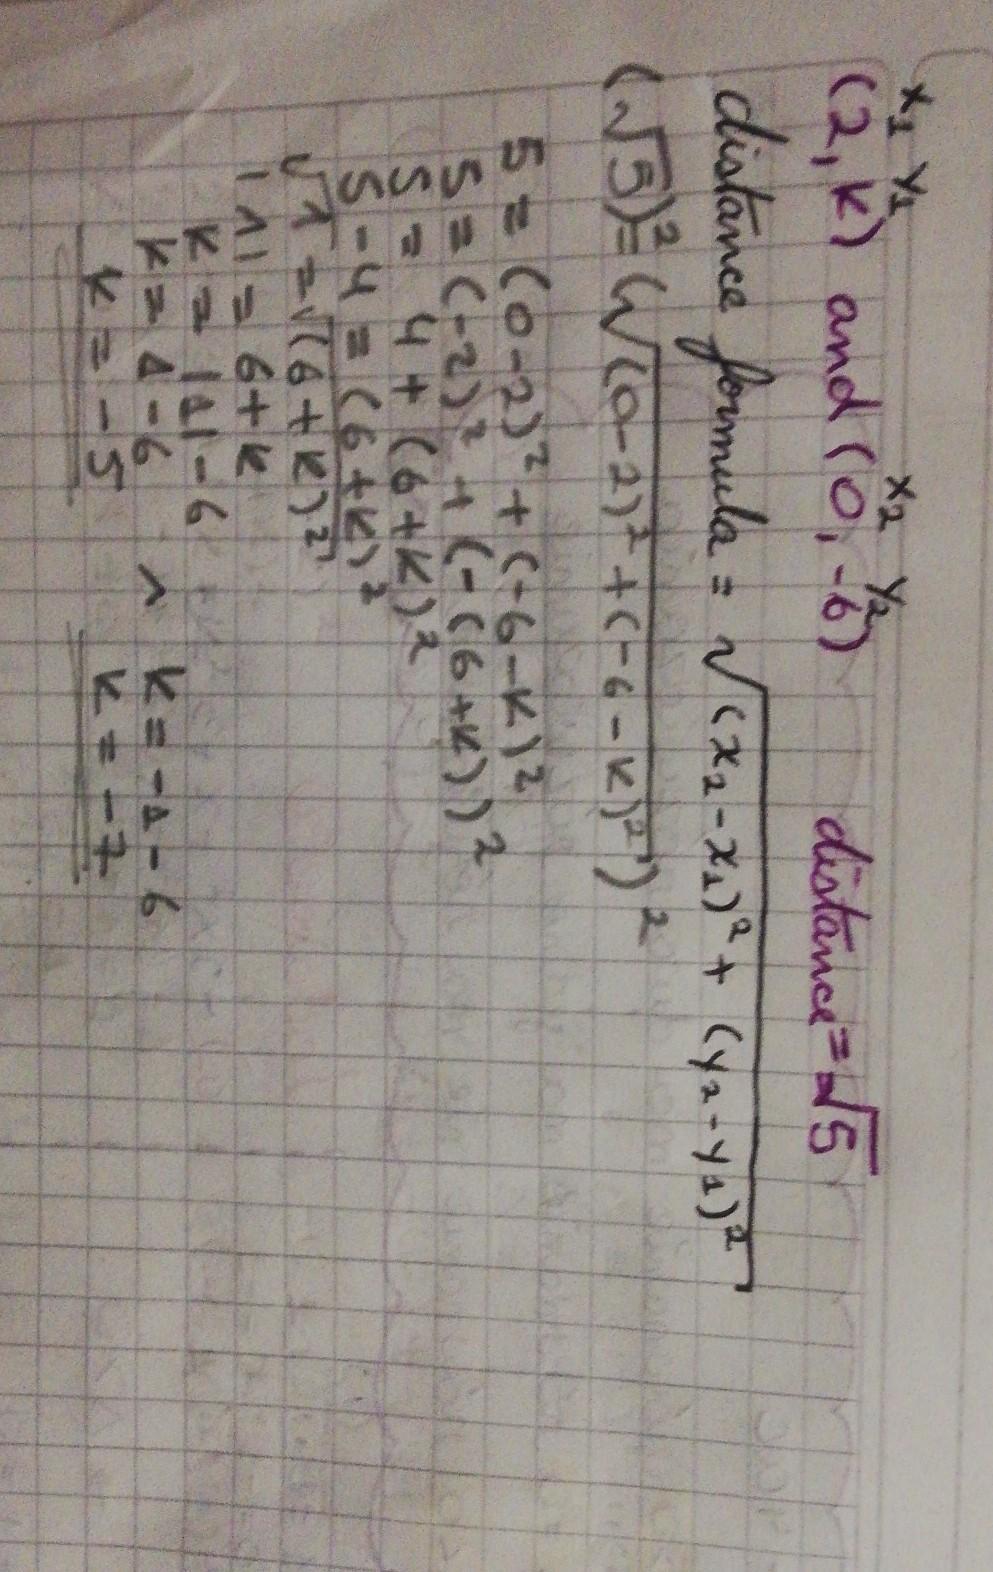 x₁ y₁ x₂ y₂
(2, k) and (0, -6) distance = √5
distance formula = √(x₂ - x₁)² + (y₂ - y₁)²
(√5)² = (√(0 - 2)² + (-6 - k)²)²
5 = (0 - 2)² + (-6 - k)²
5 = (-2)² + (-(6 + k))²
5 = 4 + (6 + k)²
5 - 4 = (6 + k)²
√1 = √(6 + k)²
|1| = 6 + k
k = |1| - 6
k = 1 - 6 ^ k = -1 - 6
k = -5 k = -7